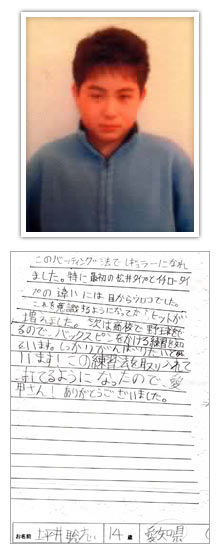 このバッティング法でレギュラーになれ
ました。特に最初の松井タイプとイチロータイ
プの違いには、目からウロコでした。
これを意識するようになってから、ヒットが
増えました。次は高校で野球をや
るので、バックスピンをかける練習を
しっかりがんばりたいと思
います！この練習法を取り入れて
打てるようになったので、
さん！ありがとうございました。
お名前 坪井 14歳 愛知県